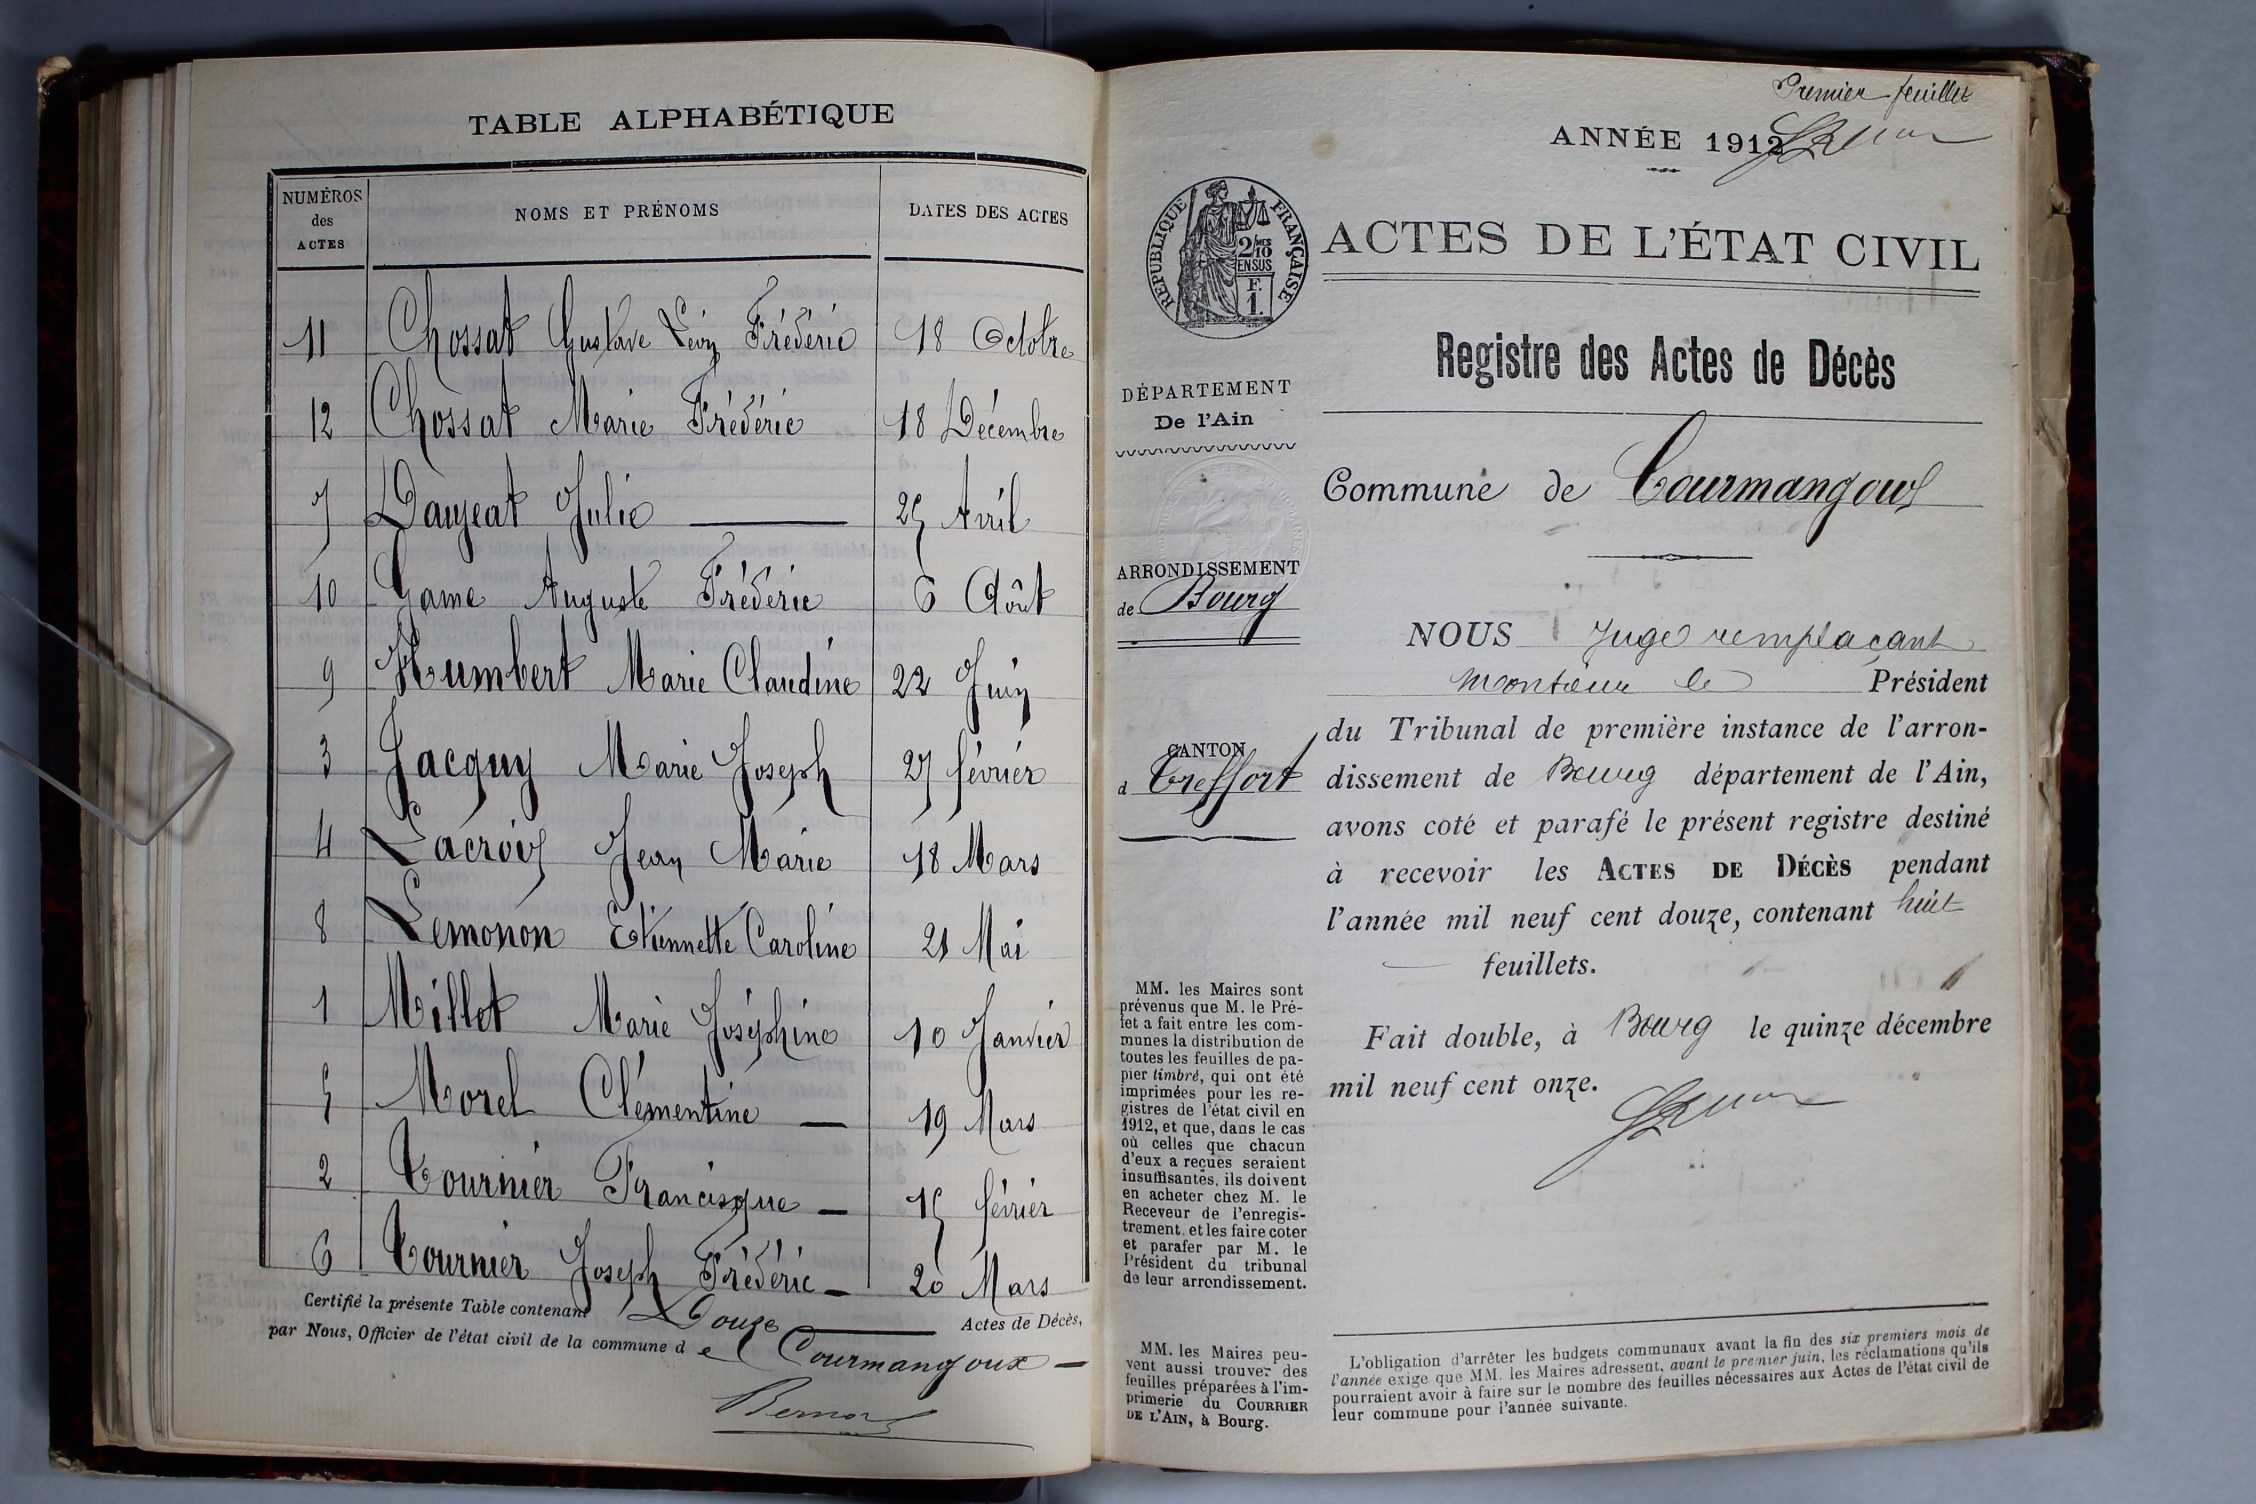 TABLE ALPHABÉTIQUE
NUMÉROS des ACTES
NOMS ET PRÉNOMS
DATES DES ACTES
11 Chossat Gustave Léon Frédéric 18 Octobre
12 Chossat Marie Frédéric 18 Décembre
7 Daujeat Julie 25 Avril
10 Game Auguste Frédéric 6 Août
9 Humbert Marie Claudine 22 Juin
3 Jacquy Marie Joseph 27 février
4 Lacroix Jean Marie 18 Mars
8 Lemonon Etiennette Caroline 21 Mai
1 Millet Marie Joséphine 10 Janvier
5 Morel Clémentine 19 Mars
2 Tournier Francisque 15 février
6 Tournier Joseph Frédéric 20 Mars
Certifié la présente Table contenant Douze Actes de Décès,
par Nous, Officier de l'état civil de la commune de Courmangoux
Premier feuillet
ANNÉE 1912
RÉPUBLIQUE FRANÇAISE
2/10 MES
EN SUS
F.
1.
ACTES DE L'ÉTAT CIVIL
Registre des Actes de Décès
DÉPARTEMENT
De l'Ain
Commune de Courmangoux
ARRONDISSEMENT
de Bourg
CANTON
d Treffort
NOUS Juge remplaçant
Monsieur le Président
du Tribunal de première instance de l'arron-
dissement de Bourg département de l'Ain,
avons coté et parafé le présent registre destiné
à recevoir les ACTES DE DÉCÈS pendant
l'année mil neuf cent douze, contenant huit
feuillets.
Fait double, à Bourg le quinze décembre
mil neuf cent onze.
MM. les Maires sont
prévenus que M. le Pré-
fet a fait entre les com-
munes la distribution de
toutes les feuilles de pa-
pier timbré, qui ont été
imprimées pour les re-
gistres de l'état civil en
1912, et que, dans le cas
où celles que chacun
d'eux a reçues seraient
insuffisantes, ils doivent
en acheter chez M. le
Receveur de l'enregis-
trement, et les faire coter
et parafer par M. le
Président du tribunal
de leur arrondissement.
MM. les Maires peu-
vent aussi trouver des
feuilles préparées à l'im-
primerie du COURRIER
DE L'AIN, à Bourg.
L'obligation d'arrêter les budgets communaux avant la fin des six premiers mois de
l'année exige que MM. les Maires adressent, avant le premier juin, les réclamations qu'ils
pourraient avoir à faire sur le nombre des feuilles nécessaires aux Actes de l'état civil de
leur commune pour l'année suivante.